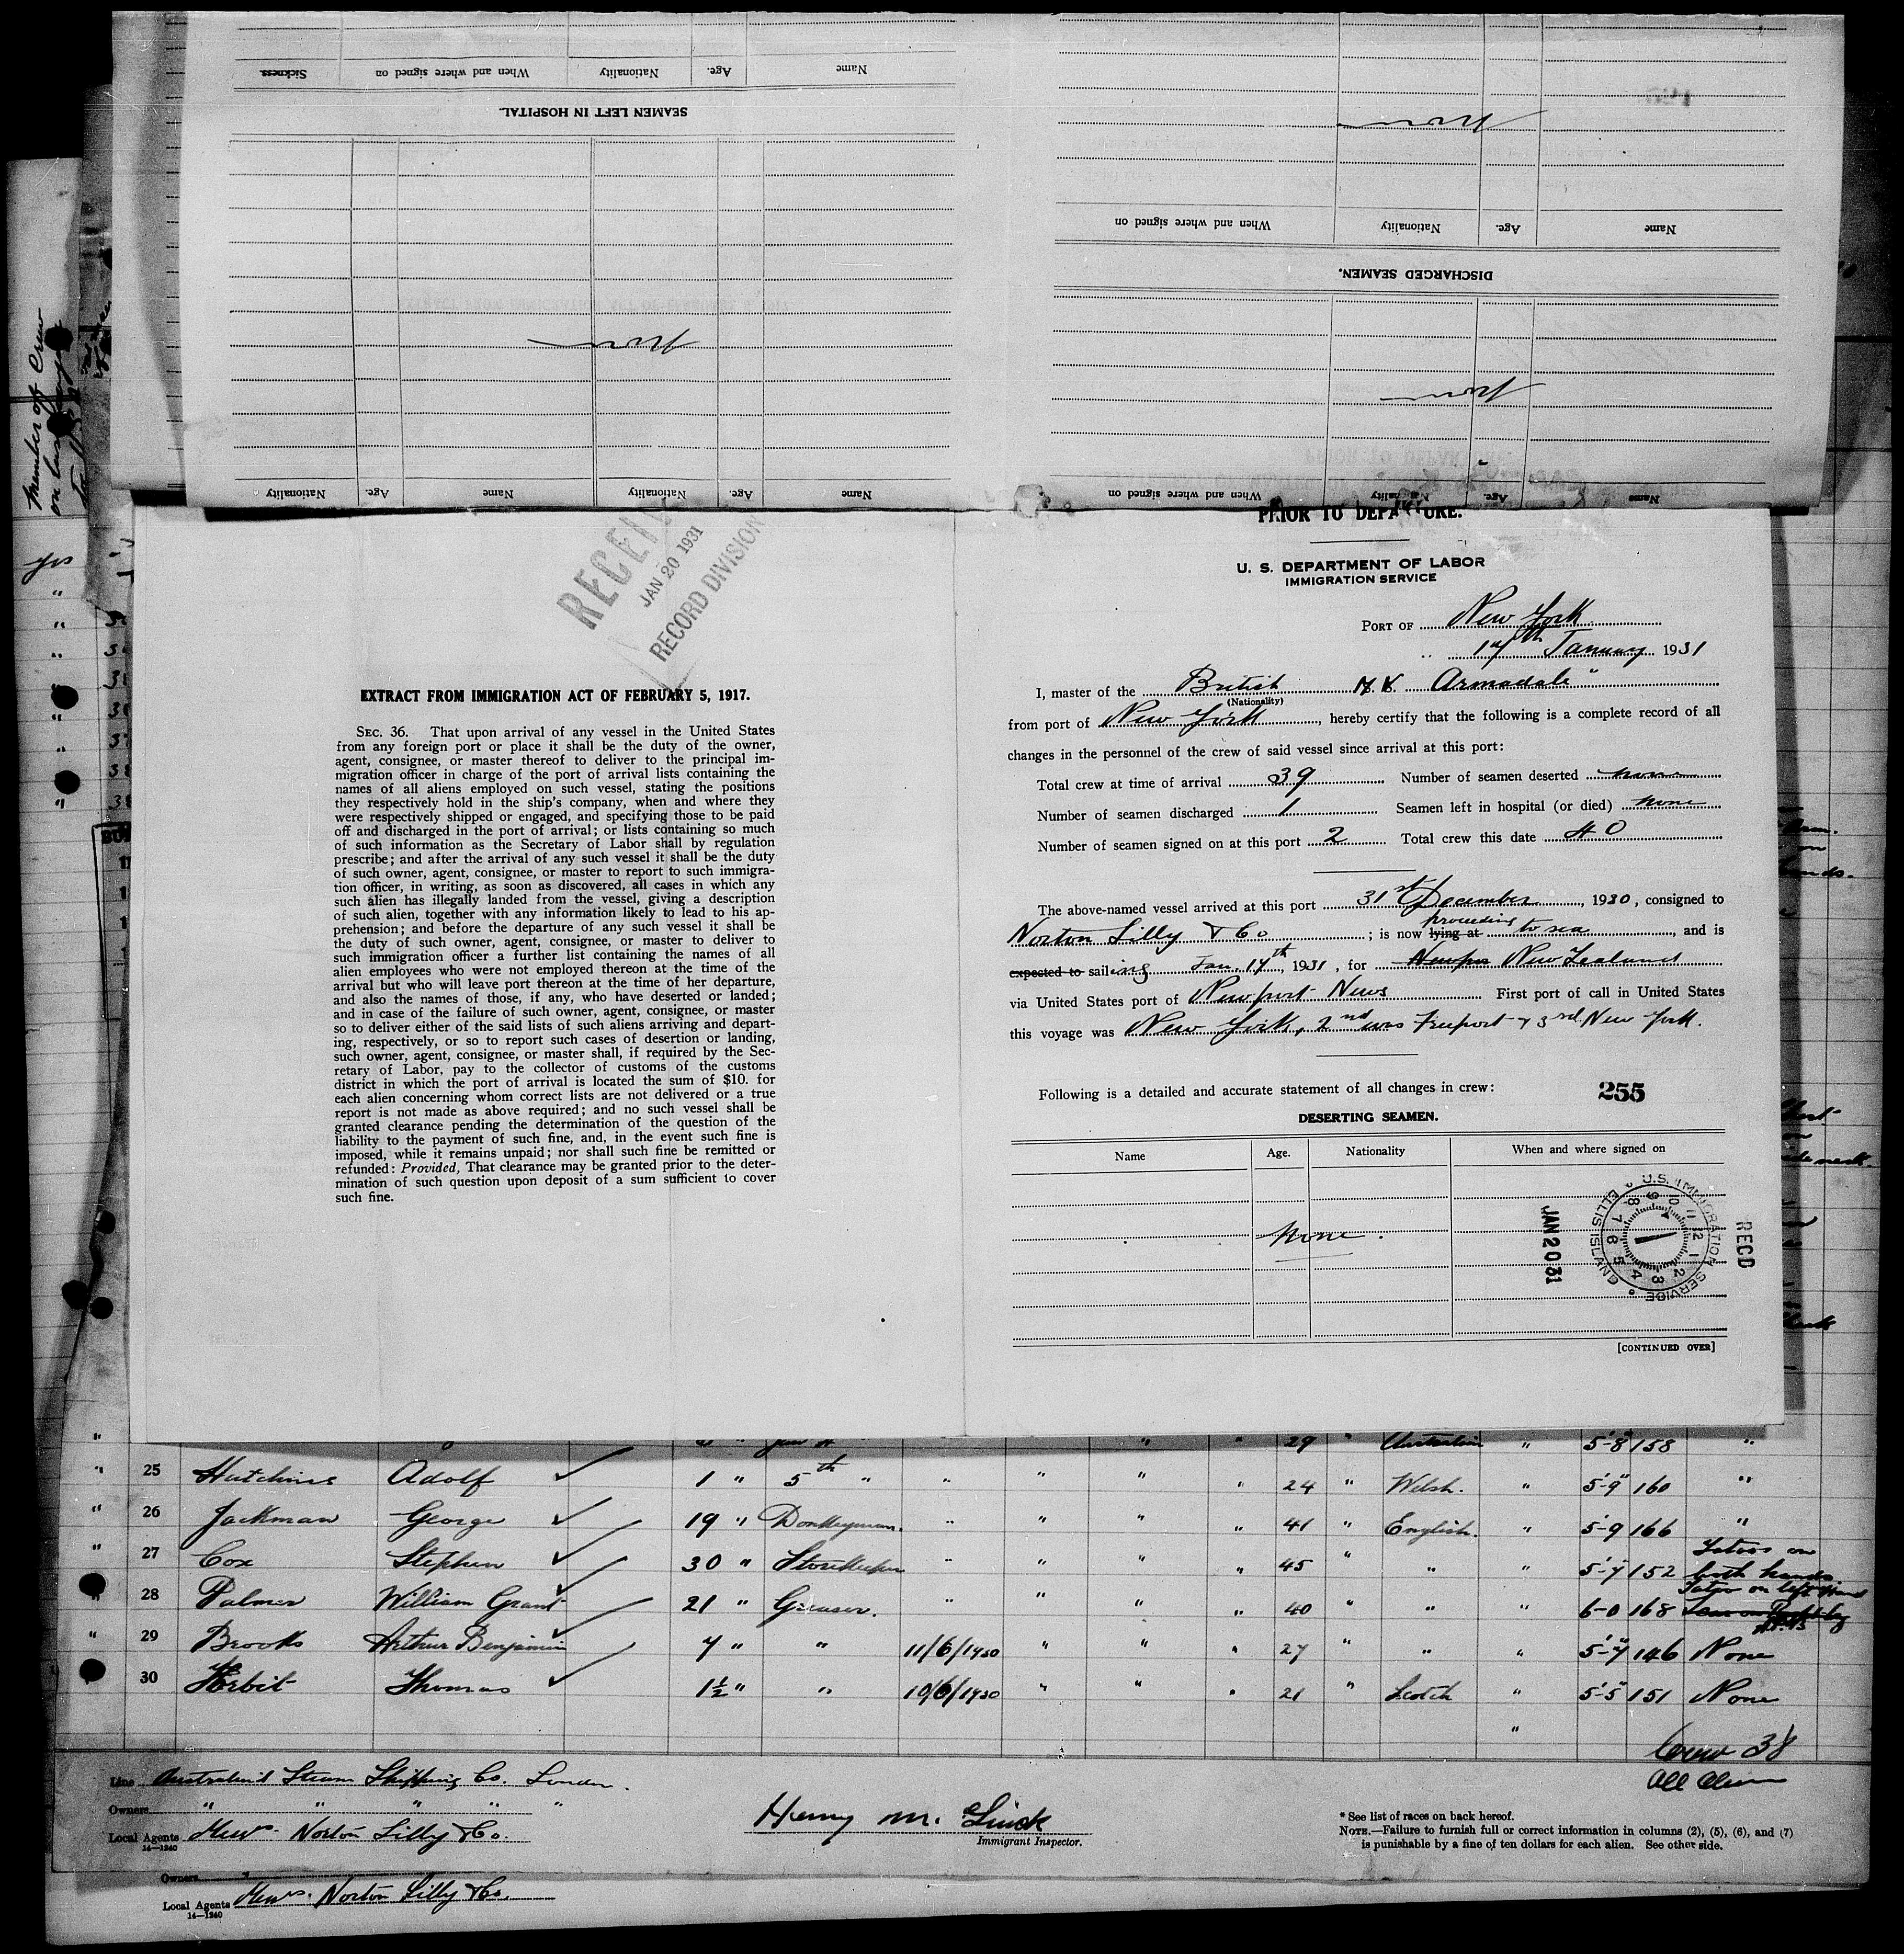 Sickness
When and where signed on
Nationality
Age.
Name
SEAMEN LEFT IN HOSPITAL.
None
Nationality
Age.
Name
Nationality
Age.
Name
None
When and where signed on
Nationality
Age.
Name
DISCHARGED SEAMEN.
None
When and where signed on
Nationality
Age.
Name
Member of Crew
yes
RECEI
JAN 20 1931
RECORD DIVISION
EXTRACT FROM IMMIGRATION ACT OF FEBRUARY 5, 1917.
SEC. 36. That upon arrival of any vessel in the United States
from any foreign port or place it shall be the duty of the owner,
agent, consignee, or master thereof to deliver to the principal im-
migration officer in charge of the port of arrival lists containing the
names of all aliens employed on such vessel, stating the positions
they respectively hold in the ship's company, when and where they
were respectively shipped or engaged, and specifying those to be paid
off and discharged in the port of arrival; or lists containing so much
of such information as the Secretary of Labor shall by regulation
prescribe; and after the arrival of any such vessel it shall be the duty
of such owner, agent, consignee, or master to report to such immigra-
tion officer, in writing, as soon as discovered, all cases in which any
such alien has illegally landed from the vessel, giving a description
of such alien, together with any information likely to lead to his ap-
prehension; and before the departure of any such vessel it shall be
the duty of such owner, agent, consignee, or master to deliver to
such immigration officer a further list containing the names of all
alien employees who were not employed thereon at the time of the
arrival but who will leave port thereon at the time of her departure,
and also the names of those, if any, who have deserted or landed;
and in case of the failure of such owner, agent, consignee, or master
so to deliver either of the said lists of such aliens arriving and depart-
ing, respectively, or so to report such cases of desertion or landing,
such owner, agent, consignee, or master shall, if required by the Sec-
retary of Labor, pay to the collector of customs of the customs
district in which the port of arrival is located the sum of $10. for
each alien concerning whom correct lists are not delivered or a true
report is not made as above required; and no such vessel shall be
granted clearance pending the determination of the question of the
liability to the payment of such fine, and, in the event such fine is
imposed, while it remains unpaid; nor shall such fine be remitted or
refunded: Provided, That clearance may be granted prior to the deter-
mination of such question upon deposit of a sum sufficient to cover
such fine.
PRIOR TO DEPARTURE.
U. S. DEPARTMENT OF LABOR
IMMIGRATION SERVICE
PORT OF New York
17th January 1931
I, master of the British M.V. Armadale"
(Nationality)
from port of New York, hereby certify that the following is a complete record of all
changes in the personnel of the crew of said vessel since arrival at this port:
Total crew at time of arrival 39 Number of seamen deserted none
Number of seamen discharged 1 Seamen left in hospital (or died) none
Number of seamen signed on at this port 2 Total crew this date 40
The above-named vessel arrived at this port 31st December, 1930, consigned to
proceeding
Norton Lilly & Co; is now lying at to sea, and is
expected to sailing Jan. 17th, 1931, for New Zealand
via United States port of Newport News First port of call in United States
this voyage was New York, 2nd was Freeport & 3rd New York.
Following is a detailed and accurate statement of all changes in crew: 255
DESERTING SEAMEN.
Name Age. Nationality When and where signed on
none.
JAN 20 31
U.S. IMMIGRATION SERVICE ELLIS ISLAND
RECD
[CONTINUED OVER]
" " 29 " Australian " 5'-8" 158 "
" 25 Hutchins Adolf ✓ 1 " 5th " " " " " 24 " Welsh. " 5'-9" 160 "
" 26 Jackman George ✓ 19 " Donkeyman. " " " " 41 " English. " 5-9 166 "
" 27 Cox Stephen ✓ 30 " Storekeeper " " " " 45 " " " 5'-7" 152 Tatoos on both hands
28 Palmer William Grant ✓ 21 " Greaser. " " " " 40 " " " 6-0 168 Tatoo on left hand
" 29 Brooks Arthur Benjamin ✓ 7 " " 11/6/1930 " " " 27 " " " 5'-7" 146 None
30 Herbit Thomas ✓ 1½ " " 10/6/1930 " " " 21 " Scotch " 5'-5" 151 None
"
Crew 38
All Aliens
Line Australind Steam Shipping Co. London.
Owners " " " " "
Local Agents Messrs Norton Lilly & Co.
14—1240
Henry M. Linck
Immigrant Inspector.
* See list of races on back hereof.
NOTE.—Failure to furnish full or correct information in columns (2), (5), (6), and (7)
is punishable by a fine of ten dollars for each alien. See other side.
Owners
Local Agents Messrs. Norton Lilly & Co.
14—1240